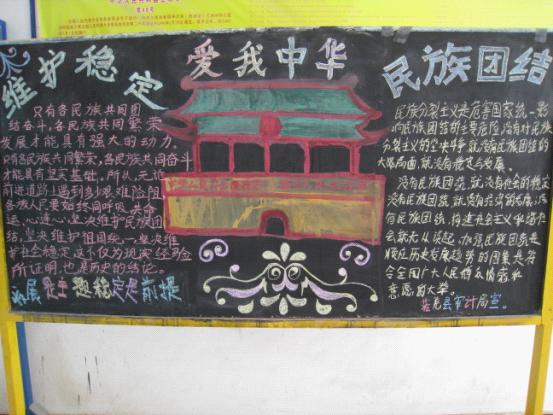 维护稳定
爱我中华
民族团结
只有各民族共同团
结奋斗,各民族共同繁荣
发展才能具有强大的动力。
只有各民族共同繁荣,各民族共同奋斗
才能具有坚实基础。所以,无论
前进道路上遇到多少艰难险阻,
各族人民要始终同呼吸、共命
运、心连心,坚决维护民族团
结,坚决维护祖国统一,坚决维
护社会稳定,这不仅为现实经验
所证明,也是历史的结论。
发展是主题稳定是前提
民族分裂主义是危害国家统一、影
响民族团结的主要危险,没有对民族
分裂主义的坚决斗争,就没有民族团结的
大好局面,就没有稳定与发展。
没有民族团结,就没有社会的稳定
没有民族团结,就没有经济的发展,没
有民族团结,构建社会主义和谐社
会就无从谈起。加强民族团结是
顺应历史发展趋势的国策,是符
合全国广大人民群众情感和
意愿的大举。
若羌县审计局宣。